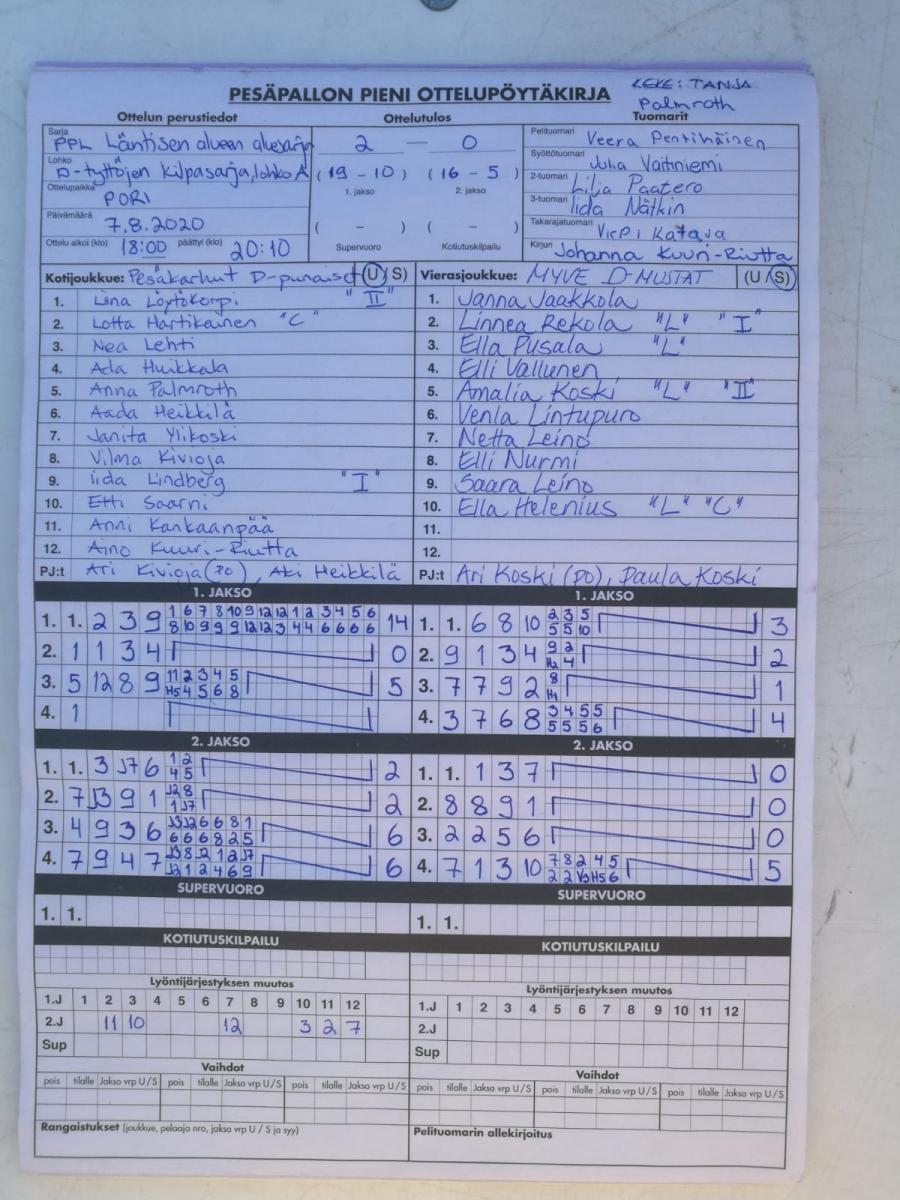 PESÄPALLON PIENI OTTELUPÖYTÄKIRJA
LEKE: TANJA
Palmroth
Ottelun perustiedot
Ottelutulos
Tuomarit
Sarja
PPL Läntisen alueen aluesarja
Lohko
D-tyttöjen kilpasarja, lohko A
Ottelupaikka
PORI
Päivämäärä
7.8.2020
Ottelu alkoi (klo) 18:00 päättyi (klo) 20:10
2 — 0
(19 - 10) (16 - 5)
1. jakso 2. jakso
( - ) ( - )
Supervuoro Kotiutuskilpailu
Pelituomari Veera Penttinäinen
Syöttötuomari Julia Vaittniemi
2-tuomari Lilja Paatero
3-tuomari Iida Nätkin
Takarajatuomari Virpi Katava
Kirjuri Johanna Kuuri-Riutta
Kotijoukkue: Pesäkarhut D-punaiset (U/S)
1. Liina Löytökorpi "II"
2. Lotta Hartikainen "C"
3. Nea Lehti
4. Ada Huikkala
5. Anna Palmroth
6. Aada Heikkilä
7. Janita Ylikoski
8. Vilma Kivioja
9. Iida Lindberg "I"
10. Etti Saarni
11. Anni Kankaanpää
12. Aino Kuuri-Riutta
PJ:t Ari Kivioja (PO), Aki Heikkilä
Vierasjoukkue: MYVE D-MUSTAT (U/S)
1. Janna Jaakkola
2. Linnea Rekola "L" "I"
3. Ella Pusala "L"
4. Elli Vallunen
5. Amalia Koski "L" "II"
6. Venla Lintupuro
7. Netta Leino
8. Elli Nurmi
9. Saara Leino
10. Ella Helenius "L" "C"
11.
12.
PJ:t Ari Koski (PO), Paula Koski
1. JAKSO
1. 1. 2 3 9 1 6 7 8 10 9 12 12 1 2 3 4 5 6 14
8 10 9 9 9 12 12 3 4 4 6 6 6 6
2. 1 1 3 4 0
3. 5 12 8 9 11 2 3 4 5 5
H5 4 5 6 8
4. 1
1. JAKSO
1. 1. 6 8 10 2 3 5 3
5 5 10
2. 9 1 3 4 9 2 2
H2 4
3. 7 7 9 2 8 1
H1
4. 3 7 6 8 3 4 5 5 4
5 5 5 6
2. JAKSO
1. 1. 3 J7 6 1 2 2
4 5
2. 7 J3 9 1 J2 8 2
1 J7
3. 4 9 3 6 J3 J2 6 6 8 1 6
6 6 6 8 2 5
4. 7 9 4 7 J3 8 J2 1 2 J7 6
J2 1 2 4 6 9
2. JAKSO
1. 1. 1 3 7 0
2. 8 8 9 1 0
3. 2 2 5 6 0
4. 7 1 3 10 7 8 2 4 5 5
2 2 V3 H5 6
SUPERVUORO
1. 1.
SUPERVUORO
1. 1.
KOTIUTUSKILPAILU
KOTIUTUSKILPAILU
Lyöntijärjestyksen muutos
1.J 1 2 3 4 5 6 7 8 9 10 11 12
2.J 11 10 12 3 2 7
Sup
Lyöntijärjestyksen muutos
1.J 1 2 3 4 5 6 7 8 9 10 11 12
2.J
Sup
Vaihdot
pois tilalle Jakso vrp U/S pois tilalle Jakso vrp U/S pois tilalle Jakso vrp U/S
Rangaistukset (joukkue, pelaaja nro, jakso vrp U / S ja syy)
Vaihdot
pois tilalle Jakso vrp U/S pois tilalle Jakso vrp U/S pois tilalle Jakso vrp U/S
Pelituomarin allekirjoitus